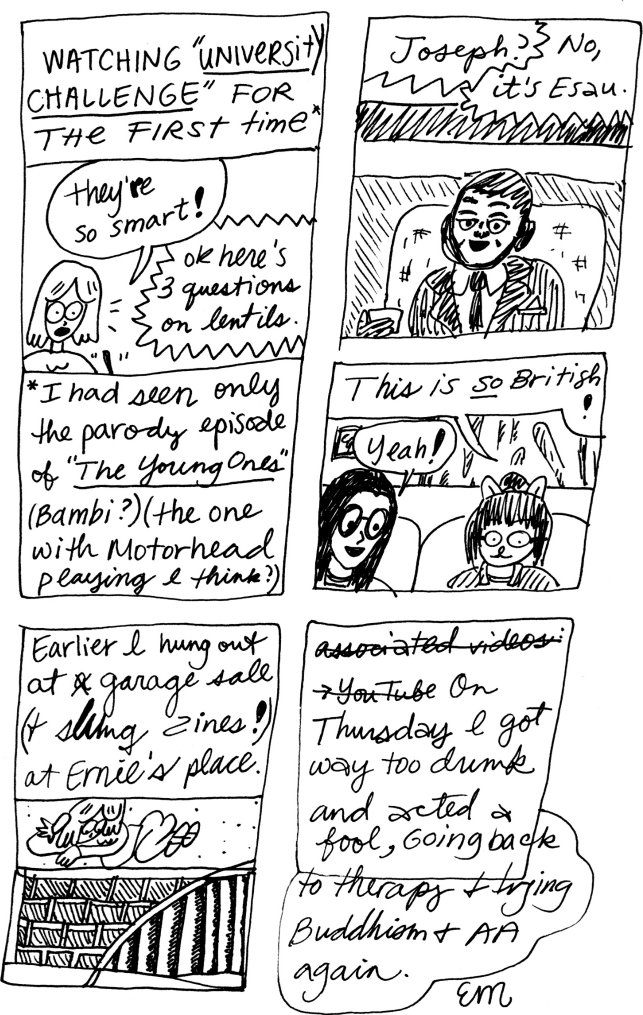 WATCHING "UNIVERSITY
CHALLENGE" FOR
THE FIRST time*
they're
so smart!
ok here's
3 questions
on lentils.
"!"
*I had seen only
the parody episode
of "The Young Ones"
(Bambi?)(the one
with Motorhead
playing I think?)
Joseph? No,
it's Esau.
This is so British
!
Yeah!
Earlier I hung out
at a garage sale
(+ slung zines!)
at Ernie's place.
associated videos:
→YouTube On
Thursday I got
way too drunk
and acted a
fool, Going back
to therapy + trying
Buddhism + AA
again.
EM